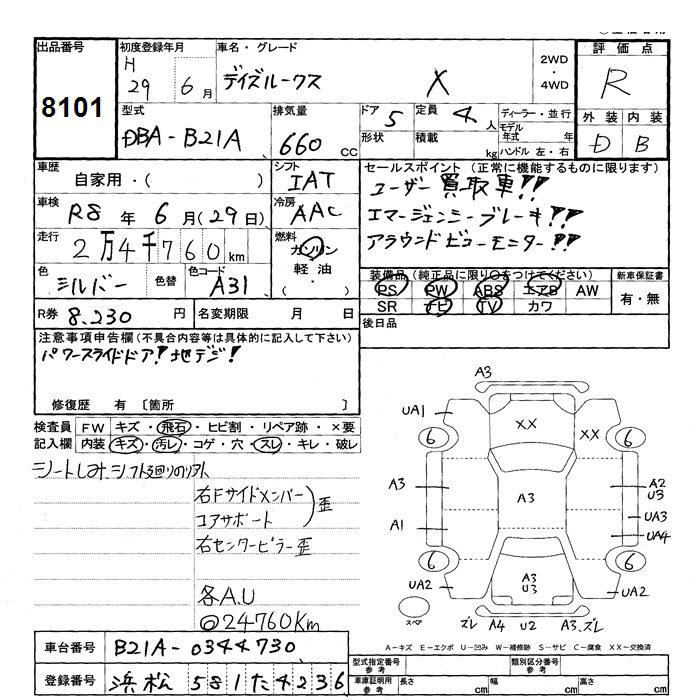 出品番号
8101
初度登録年月
H 29 6月
車名・グレード
デイズルークス X
2WD
・
4WD
評価点
R
外装 内装
D B
型式
DBA-B21A
排気量
660 CC
ドア 5
形状
定員 4人
積載 kg
ディーラー・並行
モデル年式 年
ハンドル 左・右
車歴
自家用・( )
シフト
IAT
セールスポイント (正常に機能するものに限ります)
ユーザー買取車!!
エマージェンシーブレーキ!!
アラウンドビューモニター!!!
車検
R8 年 6 月(29 日)
冷房
AAC
走行
2万4千760km
燃料
ガソリン
軽油
・( )
色
シルバー
色替
色コード
A31
装備品 (純正品に限り○をつけてください)
PS PW ABS エアB AW
SR ナビ TV カワ
新車保証書
有・無
R券 8,230 円
名変期限 月 日
後日品
注意事項申告欄(不具合内容等は具体的に記入して下さい)
パワースライドドア! 地デジ!
修復歴 有 〔箇所 〕
検査員 FW キズ・飛石・ヒビ割・リペア跡・×要
記入欄 内装 キズ・汚レ・コゲ・穴・スレ・キレ・破レ
シートしみ、シフト廻りのリアト
右Fサイドメンバー
コアサポート
歪
右センターピラー歪
各A.U
◎24760Km
A3
UA1
XX
XX
6
6
A3
A3
A2
U3
A1
UA3
UA4
6
6
UA2
A3
U3
UA2
スペア
ズレ A4 U2 A3.ズレ
A-キズ E-エクボ U-凹み W-補修跡 S-サビ C-腐食 XX-交換済
車台番号 B21A-0344730
登録番号 浜松 581 た 4236
型式指定番号
参考
類別区分番号
参考
車庫証明用
参考
長さ cm
幅 cm
高さ cm